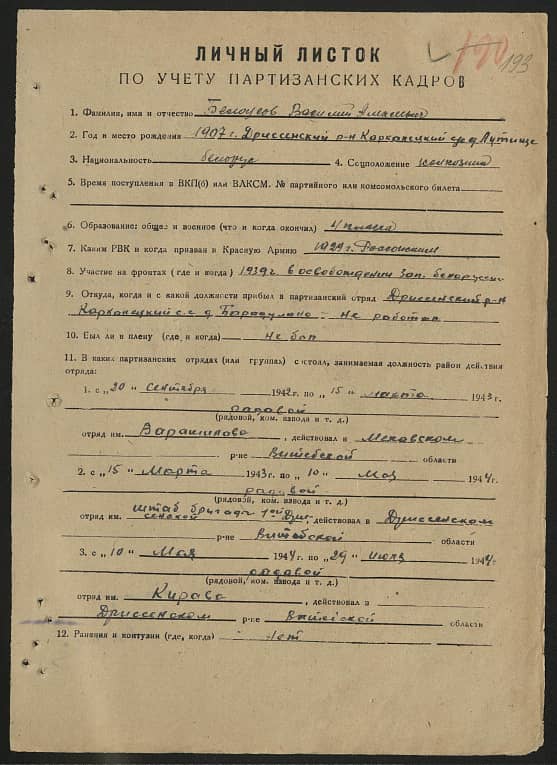 190
193
ЛИЧНЫЙ ЛИСТОК
ПО УЧЕТУ ПАРТИЗАНСКИХ КАДРОВ
1. Фамилия, имя и отчество Белоусов Василий
2. Год и место рождения 1907 г. Дриссенский р-н
3. Национальность белорус 4. Соцположение
5. Время поступления в ВКП(б) или ВЛКСМ. № партийного или комсомольского билета
6. Образование: общее и военное (что и когда окончил) 4 класса
7. Каким РВК и когда призван в Красную Армию 1929 г. Россонским
8. Участие на фронтах (где и когда) 1939 г. в освобождении Зап. Белоруссии
9. Откуда, когда и с какой должности прибыл в партизанский отряд Дриссенский р-н
с-с д. Бородулино - не работал
10. Был ли в плену (где и когда) не был
11. В каких партизанских отрядах (или группах) состоял, занимаемая должность район действия
отряда:
1. с „20" сентября 1942 г. по „15" марта 1943 г.
рядовой
(рядовой, ком. взвода и т. д.)
отряд им. Варашилова, действовал в
р-не Витебской области
2. с „15" Марта 1943 г. по „10" Мая 1944 г.
рядовой
(рядовой, ком. взвода и т. д.)
штаб бригады 1ой Дрис-
отряд им. сенской, действовал в Дриссенском
р-не Витебской области
3. с „10" Мая 1944 г. по „29" июня 1944 г.
рядовой
(рядовой, ком. взвода и т. д.)
отряд им. Кирава, действовал в
Дриссенском р-не Витебской области
12. Ранения и контузии (где, когда) нет